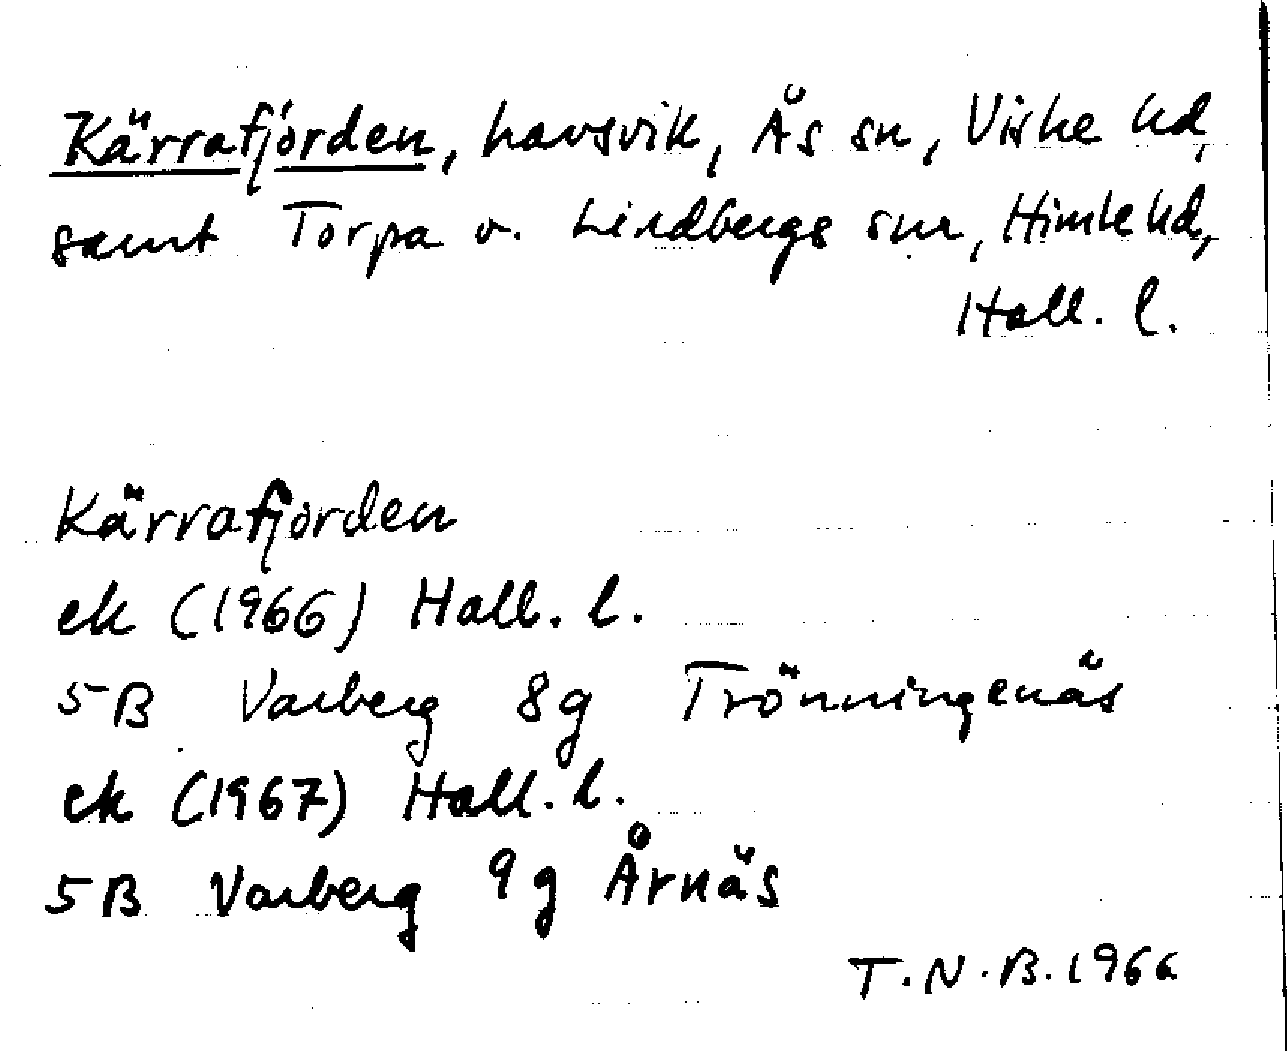 Kärrafjorden, havsvik, Ås sn, Viske hd,
samt Torpa o. Lindbergs snr, Himle hd,
Hall. l.
Kärrafjorden
ek (1966) Hall. l.
5B Varberg 8g Trönningenäs
ek (1967) Hall. l.
5B Varberg 9g Årnäs
T.N.B. 1966